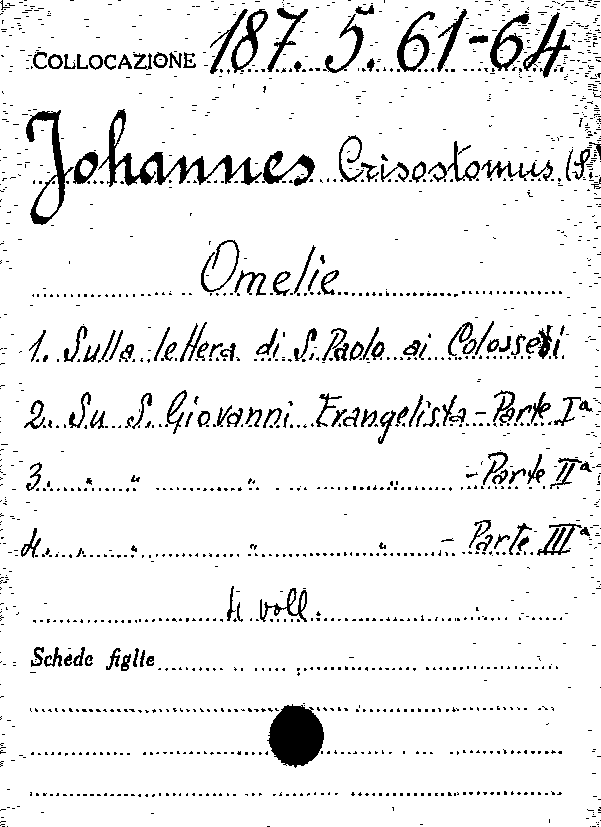 COLLOCAZIONE 187. 5. 61-64
Johannes Crisostomus (S.
Omelie
1. Sulla lettera di S. Paolo ai Colossesi
2. Su S. Giovanni Evangelista - Parte Iª
3. " " " " - Parte IIª
4. " " " " - Parte IIIª
4 voll.
Schede figlie